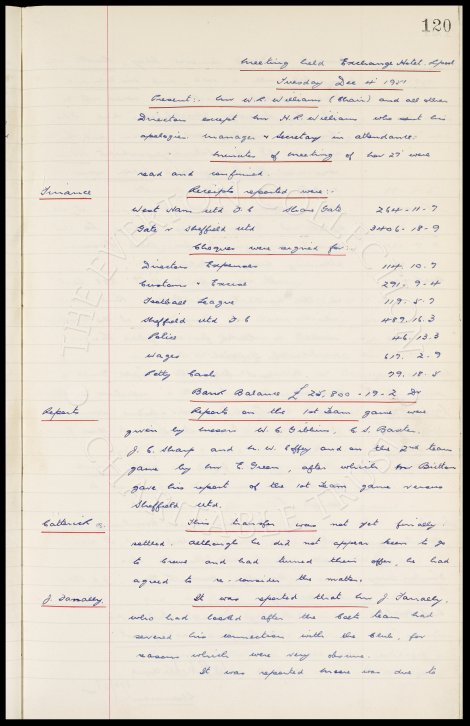 120
Meeting held Exchange Hotel. L'pool
Tuesday Dec 4th 1951
Present:- Mr W. R. Williams (Chair) and all other
Directors except Mr H. R. Williams who sent his
apologies. Manager & Secretary in attendance.
Minutes of Meeting of Nov 27th were
read and confirmed.
Finance
Receipts reported were:-
West Ham Utd F.C Share Gate 264-11-7
Gate v Sheffield Utd 3406-18-9
Cheques were signed for:-
Directors Expenses 114.10.7
Customs & Excise 291.9-4
Football League 119.5-7
Sheffield Utd F.C 489.16.3
Police 46.13.3
Wages 617.2-9
Petty Cash 79.18-5
Bank Balance £25,800-19-2 Dr
Reports
Reports on the 1st Team game were
given by Messrs W. C. Gibbins, C. S. Baxter,
J. C. Sharp and and on the 2nd team
game by Mr E. Green, after which Mr Britton
gave his report of the 1st Team game versus
Sheffield Utd.
Catterick
This transfer was not yet finally
settled. Although he did not appear keen to go
to Crewe and had turned their offer, he had
agreed to re-consider the matter.
J. Fannally
It was reported that Mr J. Fannally,
who had looked after the Colts team had
severed his connection with the Club, for
reasons which were very obscure.
It was reported was due to